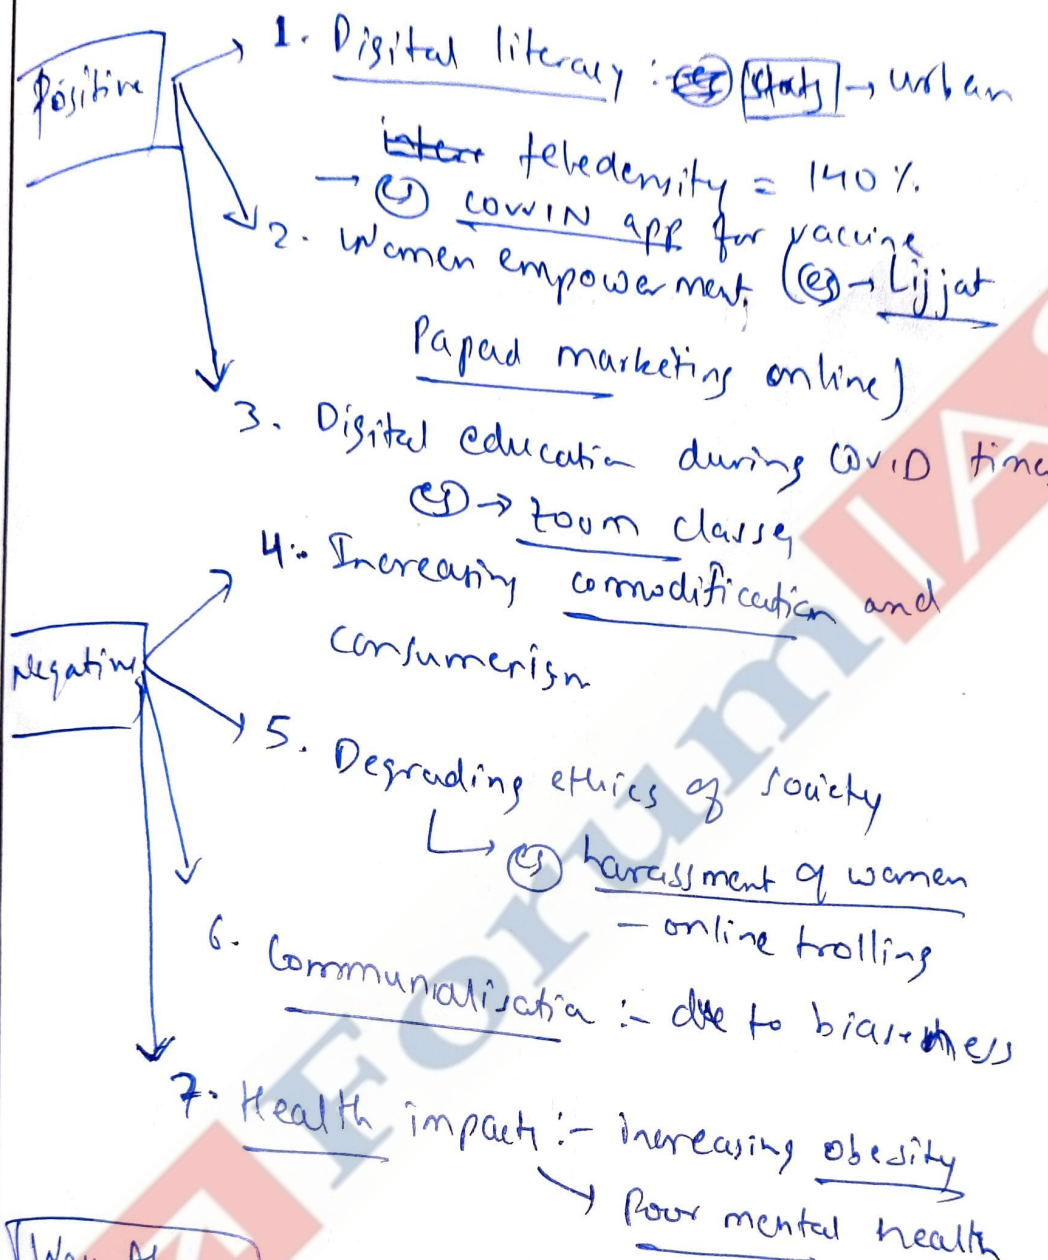 Positive
1. Digital literacy : eg stats → urban
teledensity = 140%.
→ eg COWIN app for vaccine
2. Women empowerment (eg → Lijjat
Papad marketing online)
3. Digital education during COVID time
eg → zoom classes
Negative
4. Increasing commodification and
consumerism
5. Degrading ethics of society
eg harassment of women
- online trolling
6. Communalisation :- due to biasedness
7. Health impacts :- increasing obesity
→ Poor mental health
Forum IAS